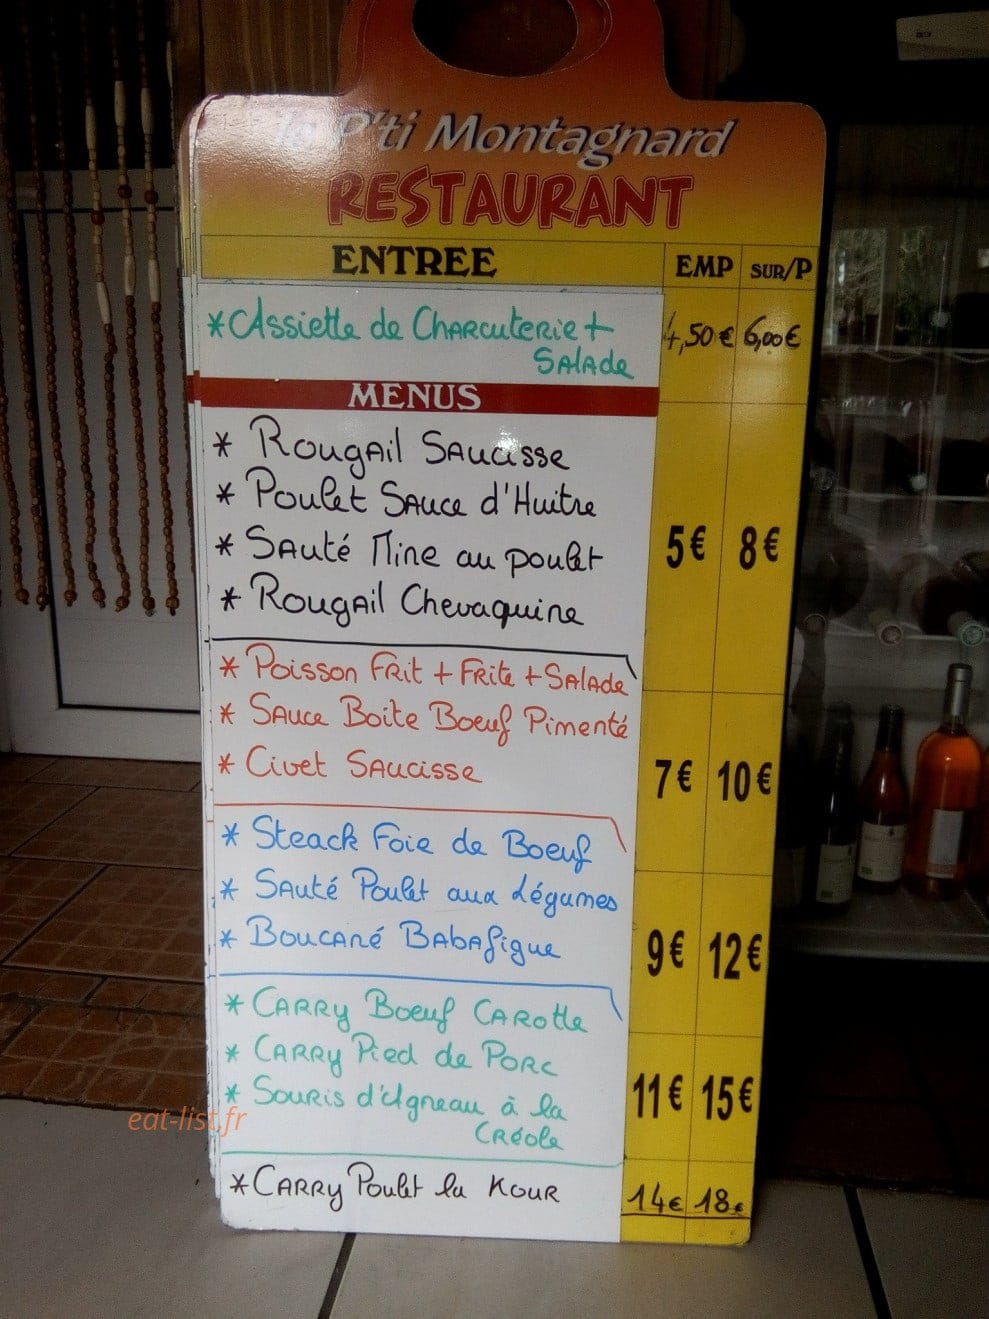 Le P'ti Montagnard
RESTAURANT
ENTREE EMP SUR/P
*Assiette de Charcuterie + 4,50€ 6,00€
Salade
MENUS
* Rougail Saucisse
* Poulet Sauce d'Huitre
* Sauté Mine au poulet 5€ 8€
* Rougail Chevaquine
* Poisson Frit + Frite + Salade
* Sauce Boite Boeuf Pimenté
* Civet Saucisse 7€ 10€
* Steack Foie de Boeuf
* Sauté Poulet aux Légumes
* Boucané Babafigue 9€ 12€
* Carry Boeuf Carotte
* Carry Pied de Porc
* Souris d'Agneau à la 11€ 15€
Créole
eat-list.fr
*Carry Poulet la Kour 14€ 18€